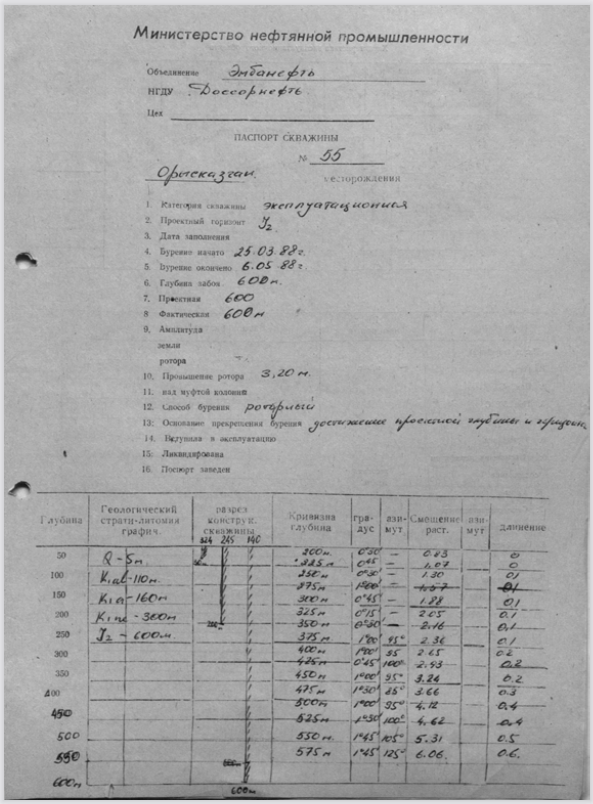 Министерство нефтянной промышленности
Объединение Эмбанефть
НГДУ Доссорнефть
Цех
ПАСПОРТ СКВАЖИНЫ
№ 55
Орысказган месторождения
1. Категория скважины эксплуатационная
2. Проектный горизонт J2
3. Дата заполнения
4. Бурение начато 25.03.88г.
5. Бурение окончено 6.05.88г.
6. Глубина забоя 600м.
7. Проектная 600
8 Фактическая 600м
9. Амплитуда
земли
ротора
10. Провышение ротора 3,20 м.
11. над муфтой колонны
12. Способ бурения роторный
13. Основание прекрепления бурения достижение проектной глубины и горизонта
14. Вступила в эксплуатацию
15. Ликвидирована
16. Поспорт заведен
Глубина Геологический страти-литомия графич. разрез конструк. скважины Кривизна глубина гра-дус ази-мут Смощение раст. ази-мут длинение
324 245 140
50 Q - 5м. 200м 0°30' — 0.83 0
225м 0°45' — 1.07 0
100 K1al - 110м. 250м 0°30' — 1.30 01
275м 1°00' — 1.57 01
150 K1a - 160м 300м 0°45' — 1.88 0,1
200 K1nc - 300м 325м 0°15' — 2.05 0,1
350м 0°30' — 2.16 0,1
250 J2 - 600м. 375м 1°00' 95° 2.36 0,1
300 400м 1°00' 95 2.65 0.2
425м 0°45' 100° 2.93 0.2
350 450м 1°00' 95° 3.24 0.2
400 475м 1°30' 85° 3.66 0.3
500м 1°00' 95° 4.12 0.4
450 525м 1°30' 100° 4.62 0.4
500 550м. 1°45' 105° 5.31 0.5
550 575м 1°45' 125° 6.06. 0.6.
600м 600м